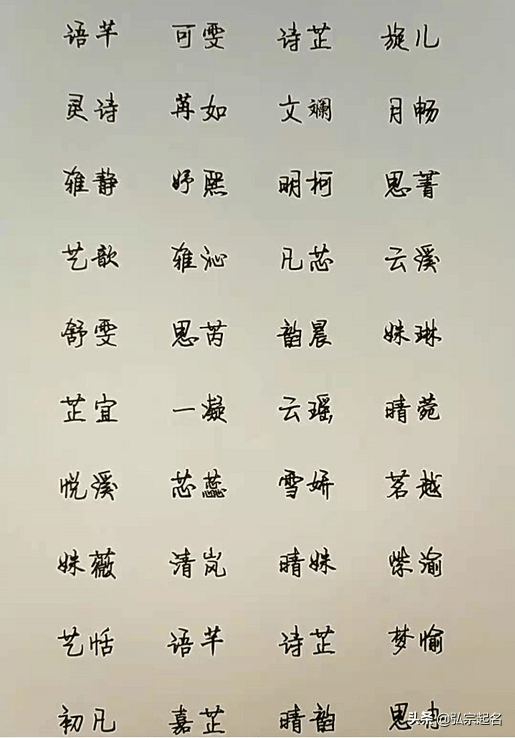 语芊 可雯 诗芷 旋儿
灵诗 苒如 文斓 月畅
雅静 妤熙 明柯 思菁
艺歆 雅沁 凡芯 云溪
舒雯 思芮 韵晨 姝琳
芷宜 一凝 云瑶 晴菀
悦溪 芯蕊 雪妍 茗越
姝薇 清岚 晴姝 紫渝
艺恬 语芊 诗芷 梦愉
初凡 嘉芷 晴韵 思
头条 @弘宗起名